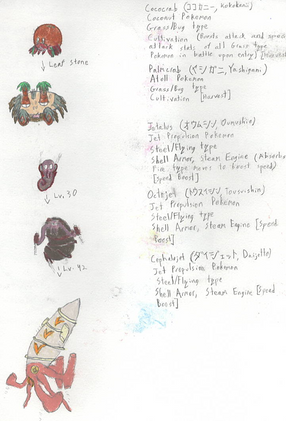 Cococrab (ココガニー, Kokokanii)
Coconut Pokemon
Grass/Bug type
Cultivation (Boosts attack and special
attack stats of all Grass type
Pokemon in battle upon entry)
↓ Leaf stone
Palmcrab (ヤシガニ, Yashigani)
Atoll Pokemon
Grass/Bug type
Cultivation [Harvest]
Jet Propulsion Pokemon
Steel/Flying type
Shell Armor, Steam Engine (Absorbs
Fire type moves to boost speed)
[Speed Boost]
↓ Lv. 30
Octojet
Jet Propulsion Pokemon
Steel/Flying type
Shell Armor, Steam Engine [Speed
Boost]
↓ Lv. 42
Cephalojet (ダイジェット, Daijetto)
Jet Propulsion Pokemon
Steel/Flying type
Shell Armor, Steam Engine [Speed
Boost]